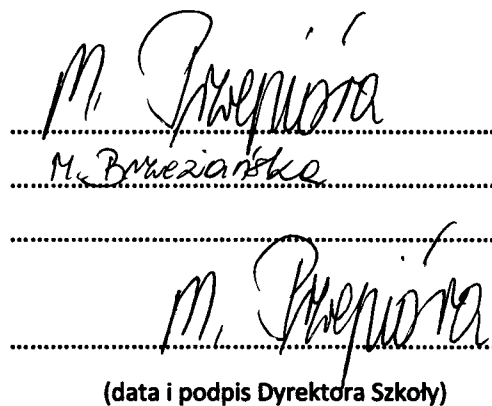 M. Przepióra
M. Brzeziańska
M. Przepióra
(data i podpis Dyrektora Szkoły)